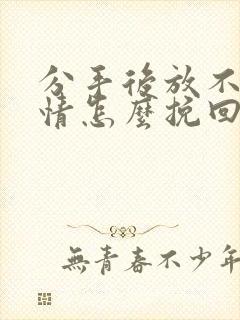 分手後放不
情怎麼挽回
無青春不少年